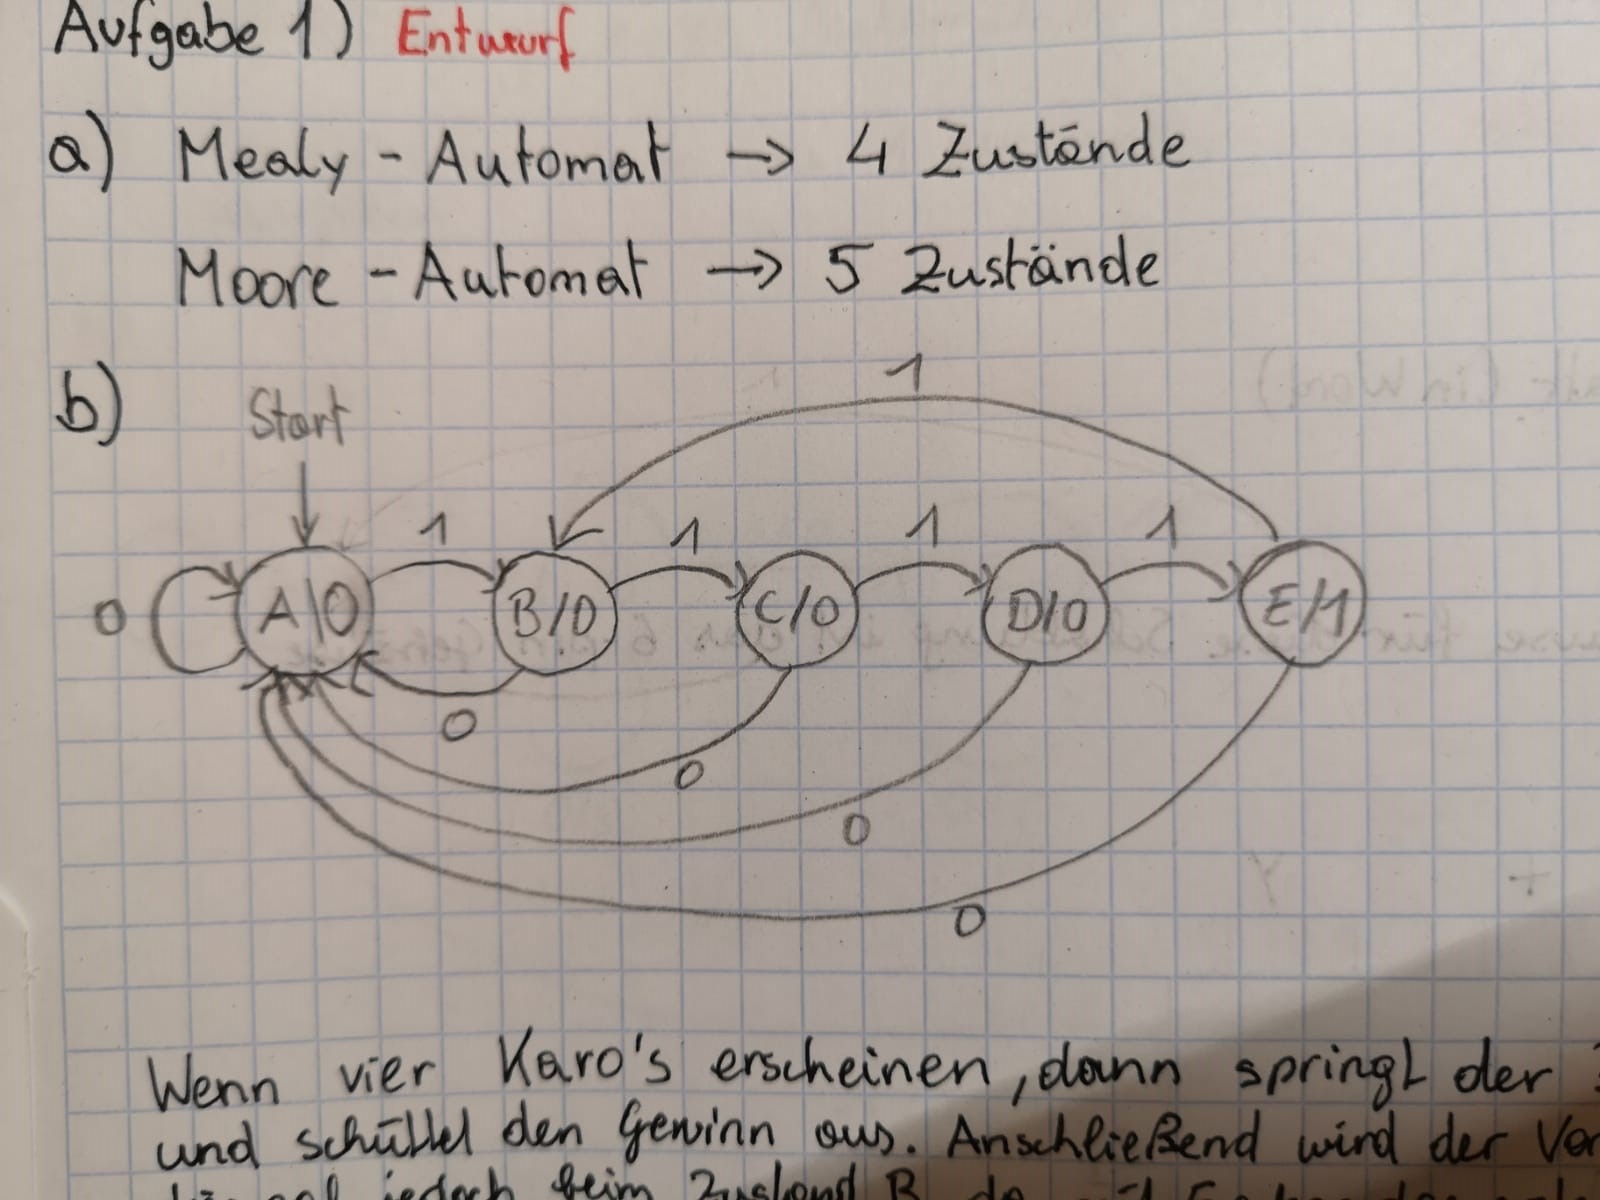 Aufgabe 1) Entwurf
a) Mealy - Automat → 4 Zustände
Moore - Automat → 5 Zustände
b) Start
1
1 1 1 1
0 A|0 B/0 C/0 D/0 E/1
0
0
0
0
Wenn vier Karo's erscheinen, dann springt der
und schüttet den Gewinn aus. Anschließend wird der
jedoch beim Zustand B, da